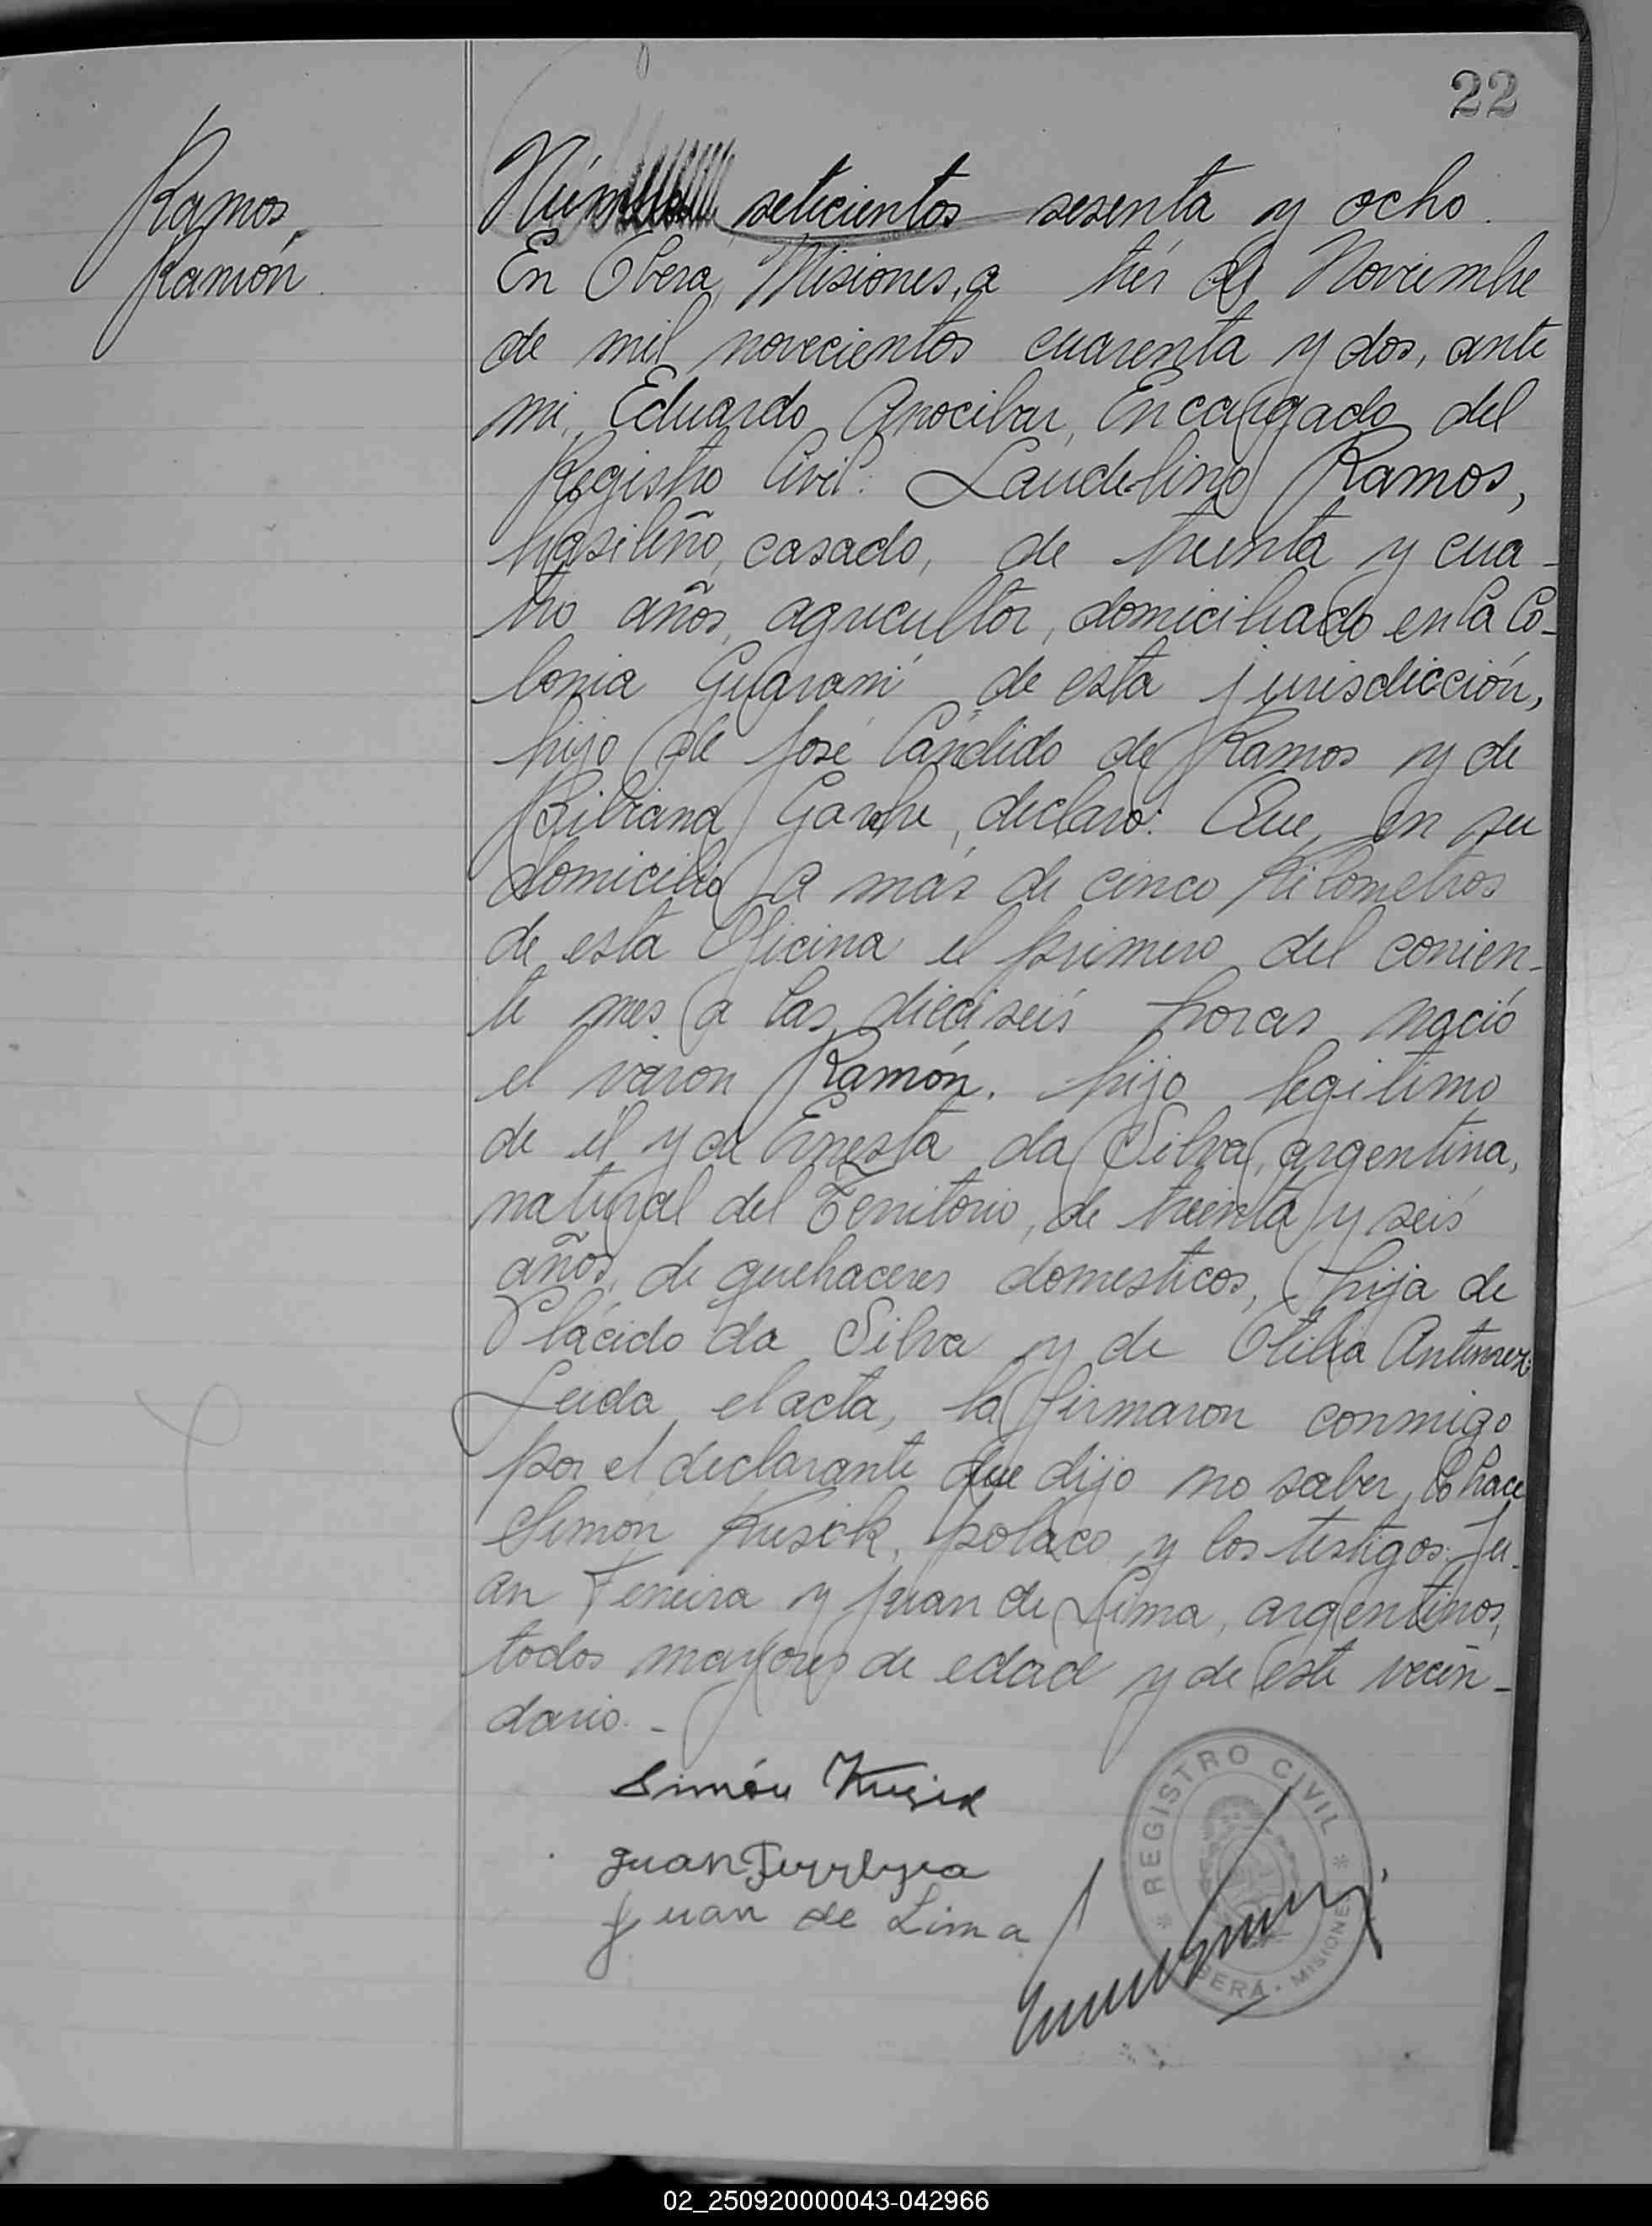 22
Ramos,
Ramón.
Número seticientos sesenta y ocho.
En Oberá, Misiones, a trés de Noviembre
de mil novecientos cuarenta y dos, ante
mi, Eduardo Arrocibar, Encargado del
Registro Civil: Laudelino Ramos,
brasileño, casado, de treinta y cua-
tro años, agricultor, domiciliado en la Co-
lonia Guaraní de esta jurisdicción,
hijo de José Cándido de Ramos y de
Bibiana declaró: Que, en su
domicilio a más de cinco kilometros
de esta Oficina el primero del corrien-
te mes a las dieciseis horas nació
el varon Ramón, hijo legitimo
de él y de Ernesta da Silva, argentina,
natural del Territorio, de treinta y seis
años, de quehaceres domesticos, hija de
Plácido da Silva y de Otilia
Leida el acta, la firmaron conmigo
por el declarante que dijo no saber, lo hace
Simón Kusik, polaco y los testigos: Ju-
an Ferreira y Juan de Lima, argentinos,
todos mayores de edad y de este vecin-
dario.-
Simón Kusik
Juan Ferreyra
Juan de Lima
REGISTRO CIVIL
OBERÁ - MISIONES
02_250920000043-042966